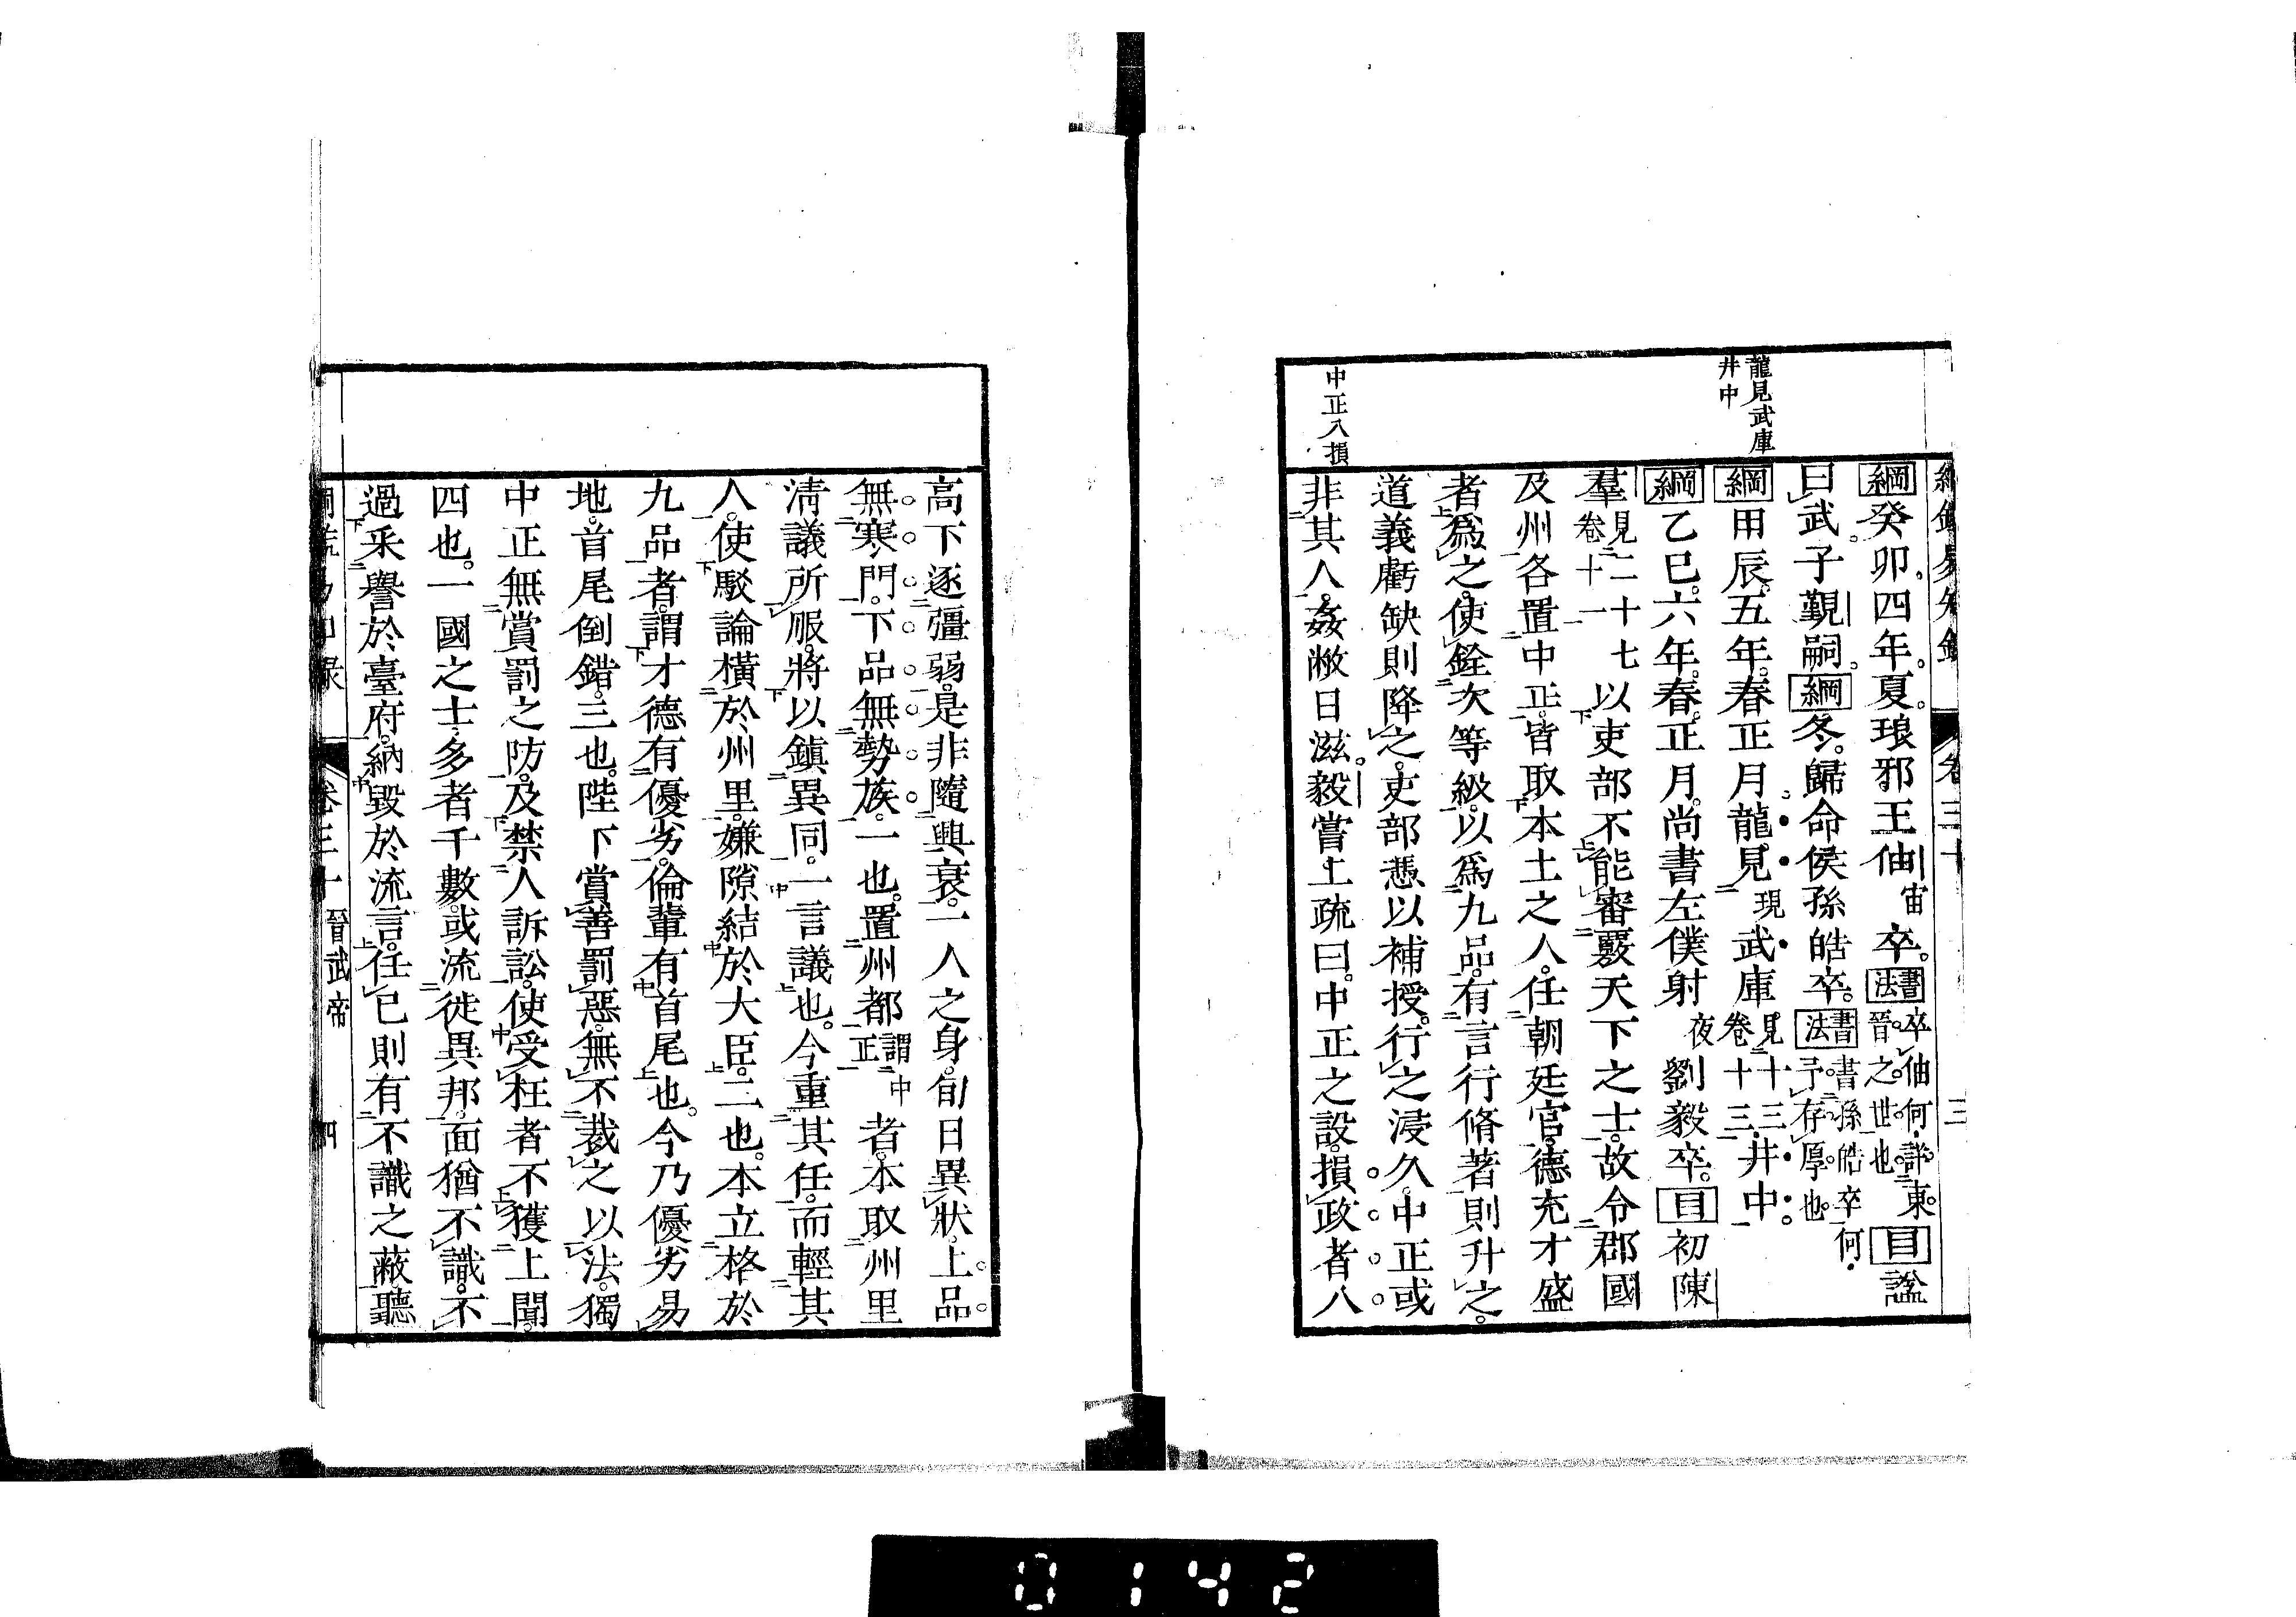 綱鑑易知錄 卷三十 三
龍見武庫
井中
中正八損
綱癸卯四年。夏。琅邪王伷宙卒。書法卒伷何。詳東晉之世也。目諡
曰武。子覲嗣。綱冬。歸命侯孫皓卒。書法書孫皓卒何。予存厚也。
綱甲辰。五年。春正月。龍見現武庫見十三卷十三井中。
綱乙巳。六年。春。正月。尚書左僕射夜劉毅卒。目初陳
羣見二十七卷十一以吏部不能審覈天下之士。故令郡國
及州各置中正。皆取本土之人。任朝廷官。德充才盛
者爲之。使銓次等級。以爲九品。有言行脩著則升之。
道義虧缺則降之。吏部憑以補授。行之浸久。中正或
非其人。姦敝日滋。毅嘗上疏曰。中正之設。損政者八
高下逐彊弱。是非隨興衰。一人之身。旬日異狀。上品
無寒門。下品無勢族。一也。置州都謂中正者。本取州里
淸議所服。將以鎭異同。一言議也。今重其任。而輕其
人。使駁論橫於州里。嫌隙結於大臣。二也。本立格於
九品者。謂才德有優劣。倫輩有首尾也。今乃優劣易
地。首尾倒錯。三也。陛下賞善罰惡。無不裁之以法。獨
中正無賞罰之防。及禁人訴訟。使受枉者不獲上聞。
四也。一國之士。多者千數。或流徙異邦。面猶不識。不
過采譽於臺府。納毀於流言。任己則有不識之蔽。聽
卷三十 晉武帝 四
0142